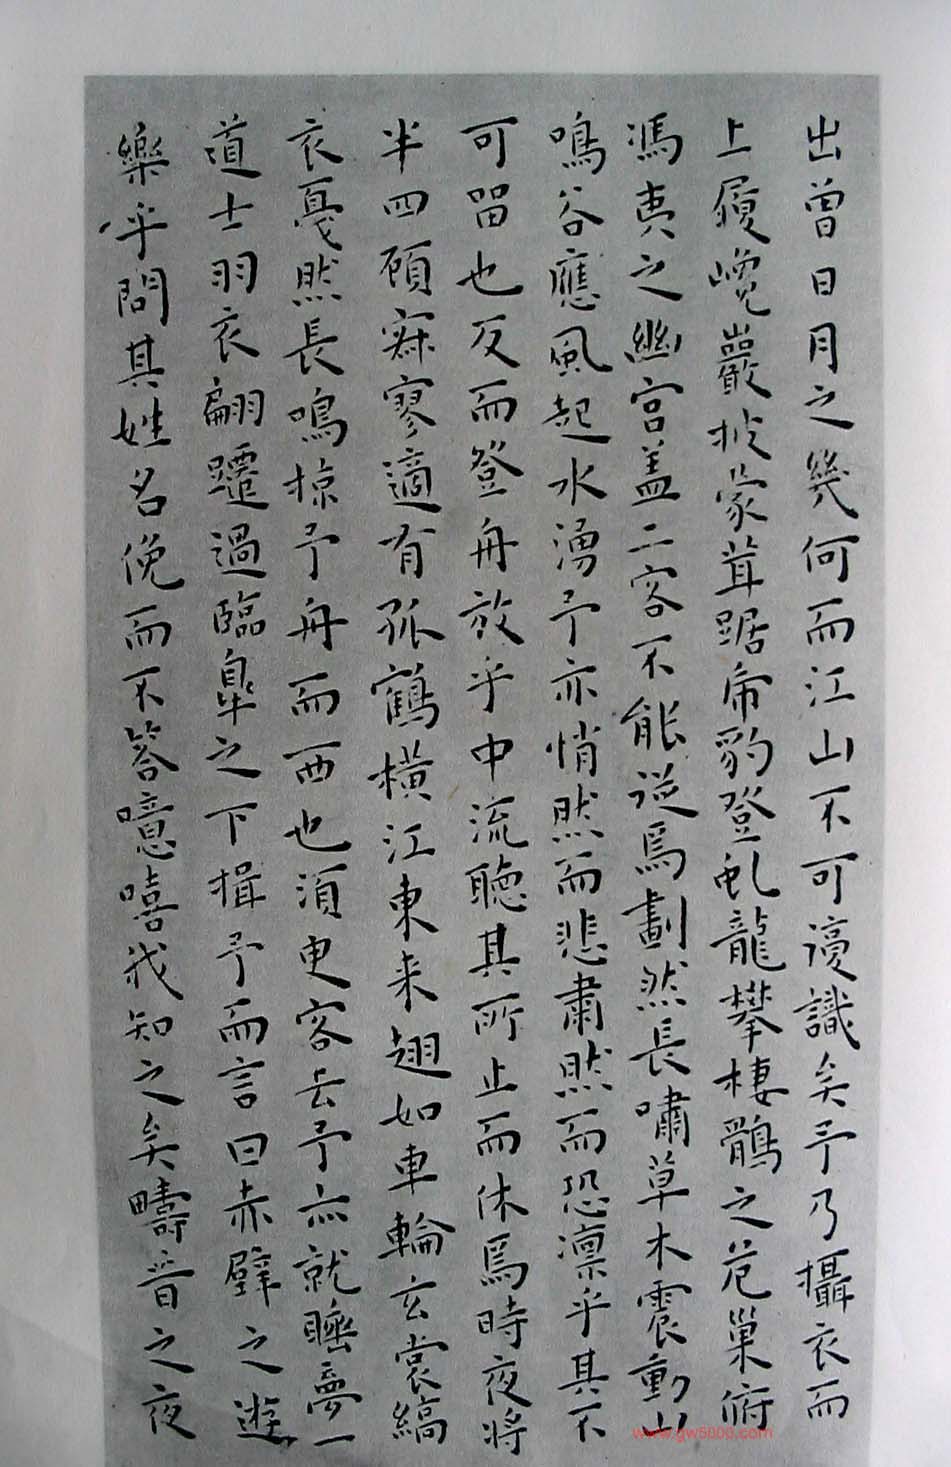 出曾日月之幾何而江山不可復識矣予乃攝衣而
上履巉巖披蒙茸踞虎豹登虬龍攀棲鶻之危巢俯
馮夷之幽宮盖二客不能從焉劃然長嘯草木震動山
鳴谷應風起水湧予亦悄然而悲肅然而恐凛乎其不
可留也反而登舟放乎中流聽其所止而休焉時夜將
半四顧寂寥適有孤鶴橫江東来翅如車輪玄裳縞
衣戞然長鳴掠予舟而西也須臾客去予亦就睡夢一
道士羽衣翩躚過臨皐之下揖予而言曰赤壁之遊
樂乎問其姓名俛而不答嗚嘻我知之矣疇昔之夜
www.gw5000.com